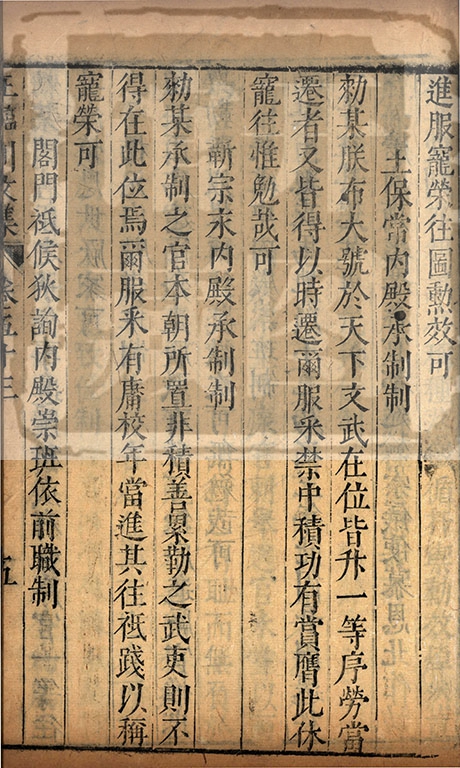 進服寵榮往圖勲效可
王保常内殿承制制
勑某朕布大號於天下文武在位皆升一等序勞當
遷者又皆得以時遷爾服釆禁中積功有賞膺此休
寵往惟勉哉可
靳宗末内殿承制制
勑某承制之官本朝所置非積善累勤之武吏則不
得在此位焉爾服釆有庸校年當進其往祗踐以稱
寵榮可
閤門祗候狄詢内殿崇班依前職制
王臨川文集 卷五十三 五